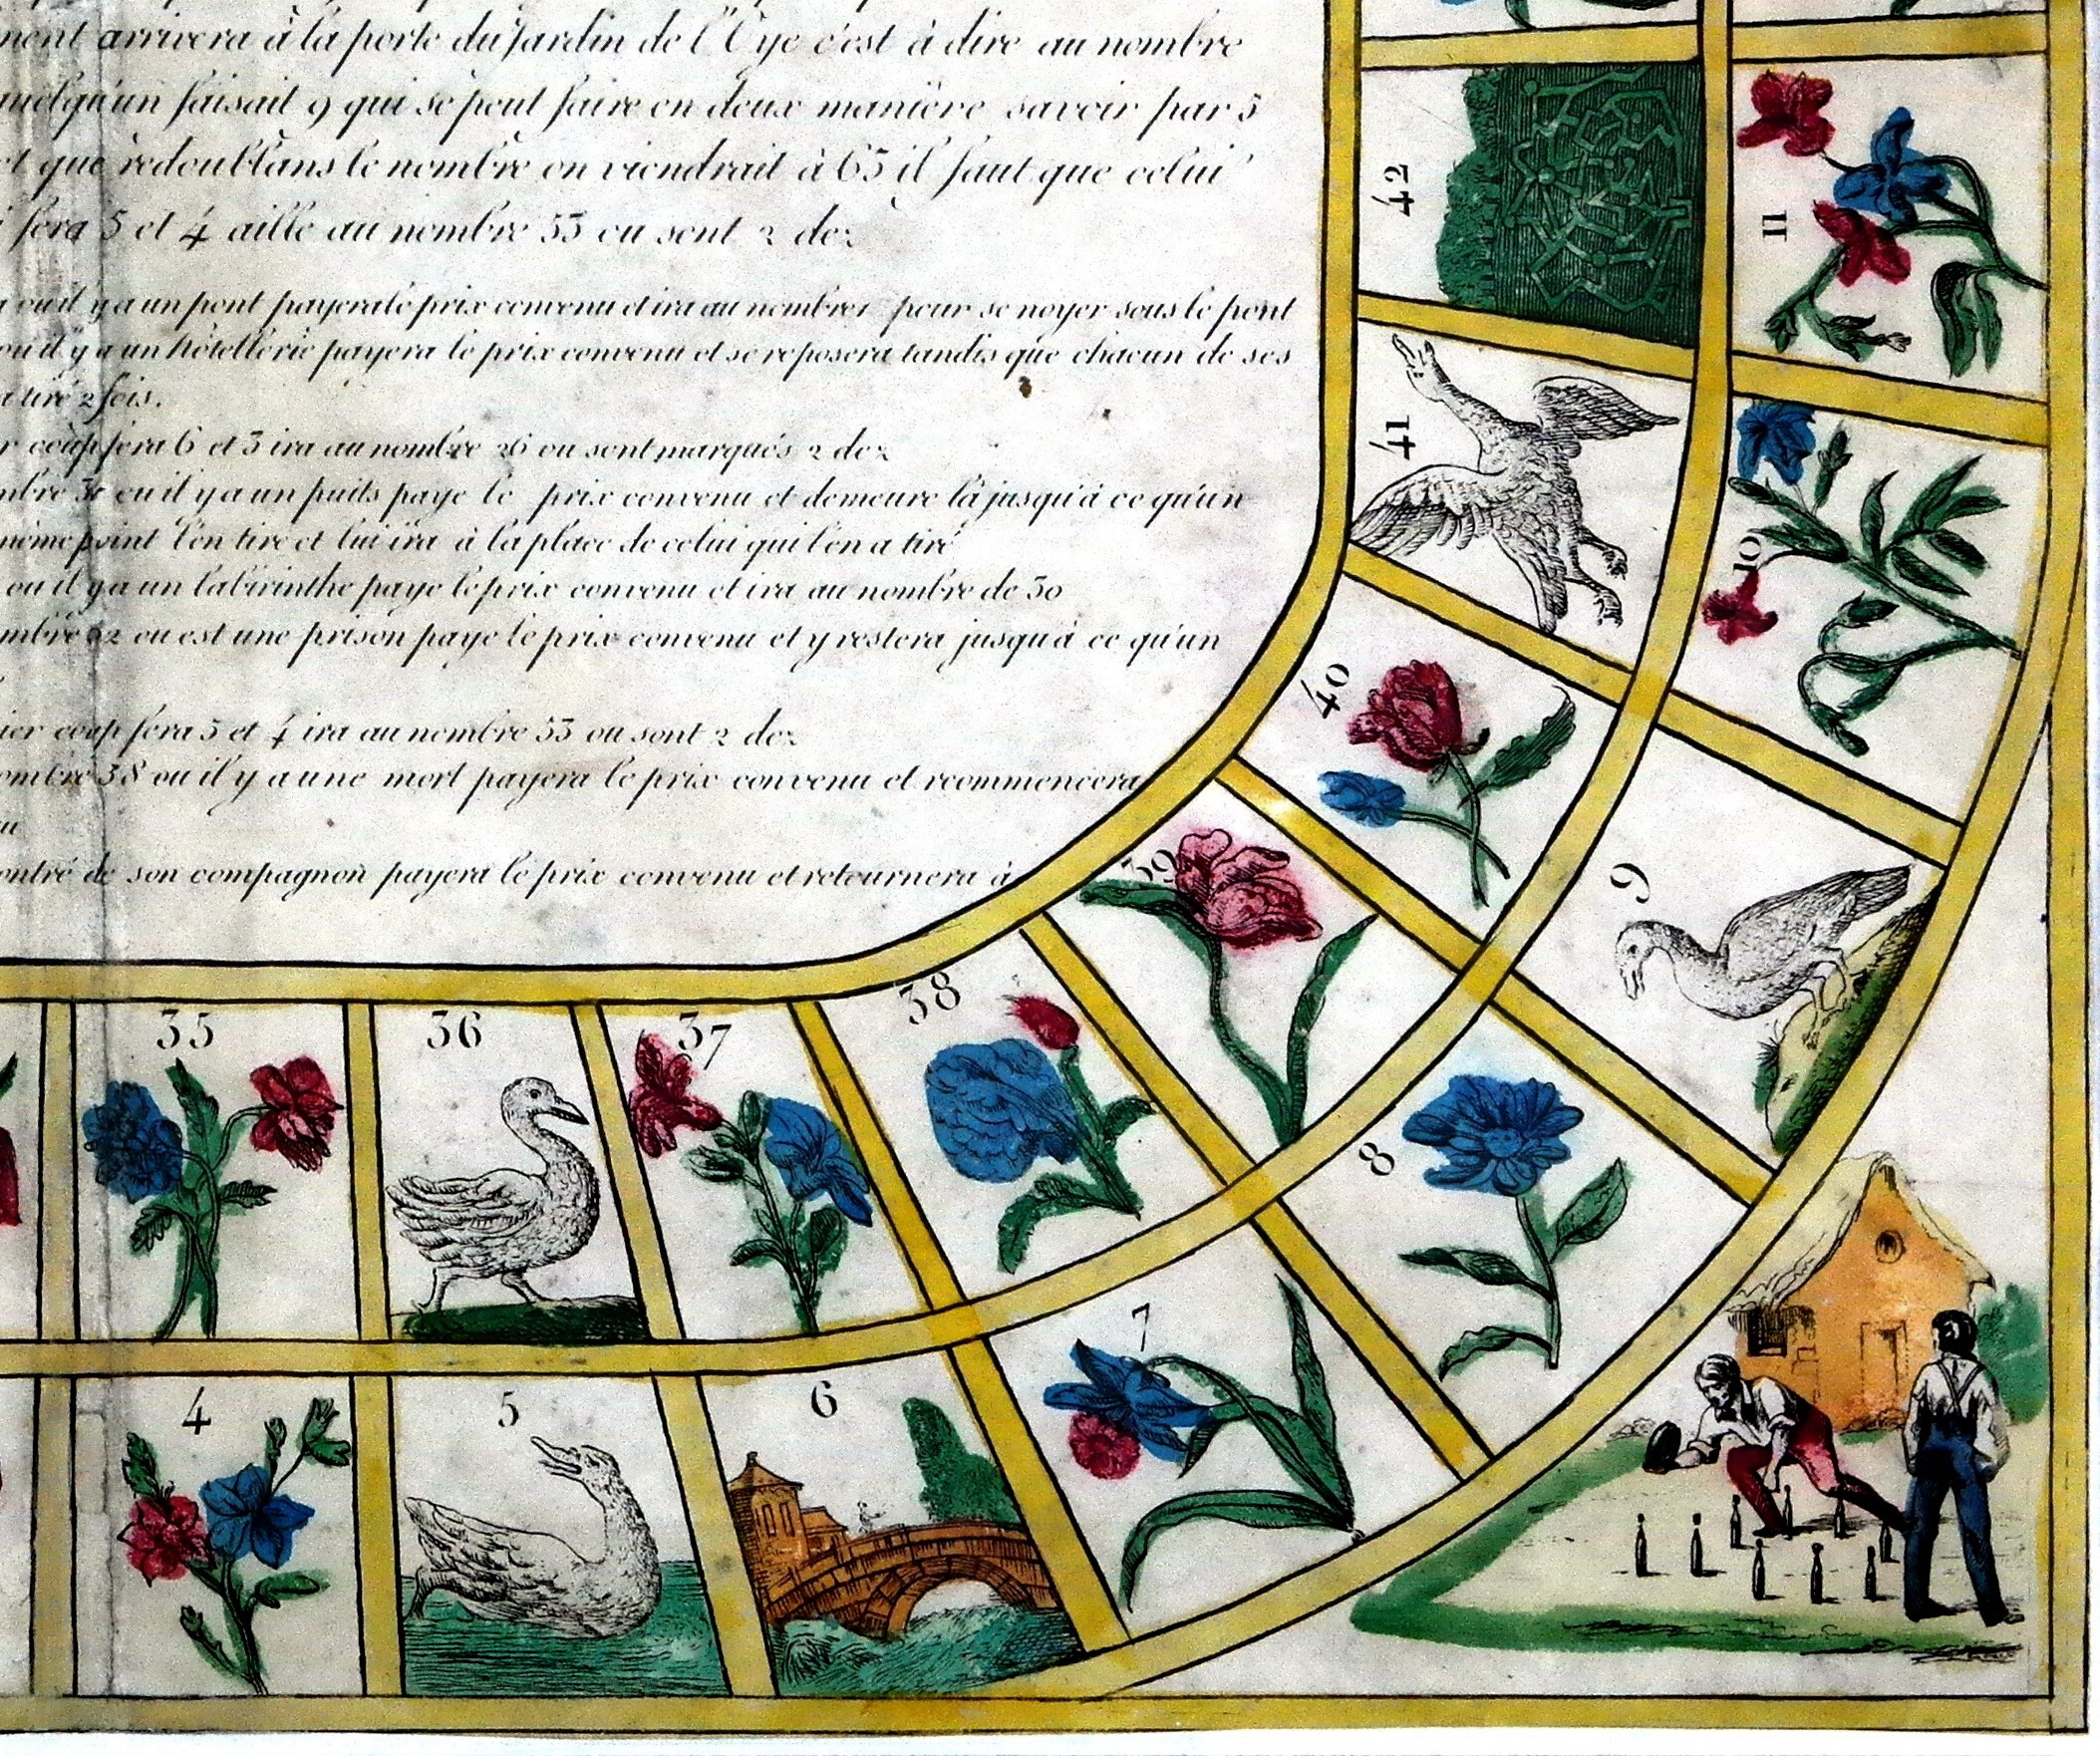 arrivera à la porte du Jardin de l'Oye c'est à dire au nombre
faisait 9 qui se peut faire en deux manière savoir par 5
et que redoublans le nombre on viendrait à 63 il faut que celui
fera 5 et 4 aille au nombre 53 ou sont 2 dez
ou il y a un pont payera le prix convenu et ira au nombre pour se noyer sous le pont
ou il y a un hôtellerie payera le prix convenu et se reposera tandis que chacun de ses
tiré 2 fois.
coup fera 6 et 3 ira au nombre 26 ou sont marqués 2 dez
31 ou il y a un puits paye le prix convenu et demeure là jusqu'à ce qu'un
même point l'en tire et lui ira à la place de celui qui l'en a tiré
ou il y a un labirinthe paye le prix convenu et ira au nombre de 30
ou est une prison paye le prix convenu et y restera jusqu'à ce qu'un
coup fera 5 et 4 ira au nombre 53 ou sont 2 dez
ou il y a une mort payera le prix convenu et recommencera
de son compagnon payera le prix convenu et retournera à
42
11
41
10
40
9
39
38
8
35
36
37
7
4
5
6